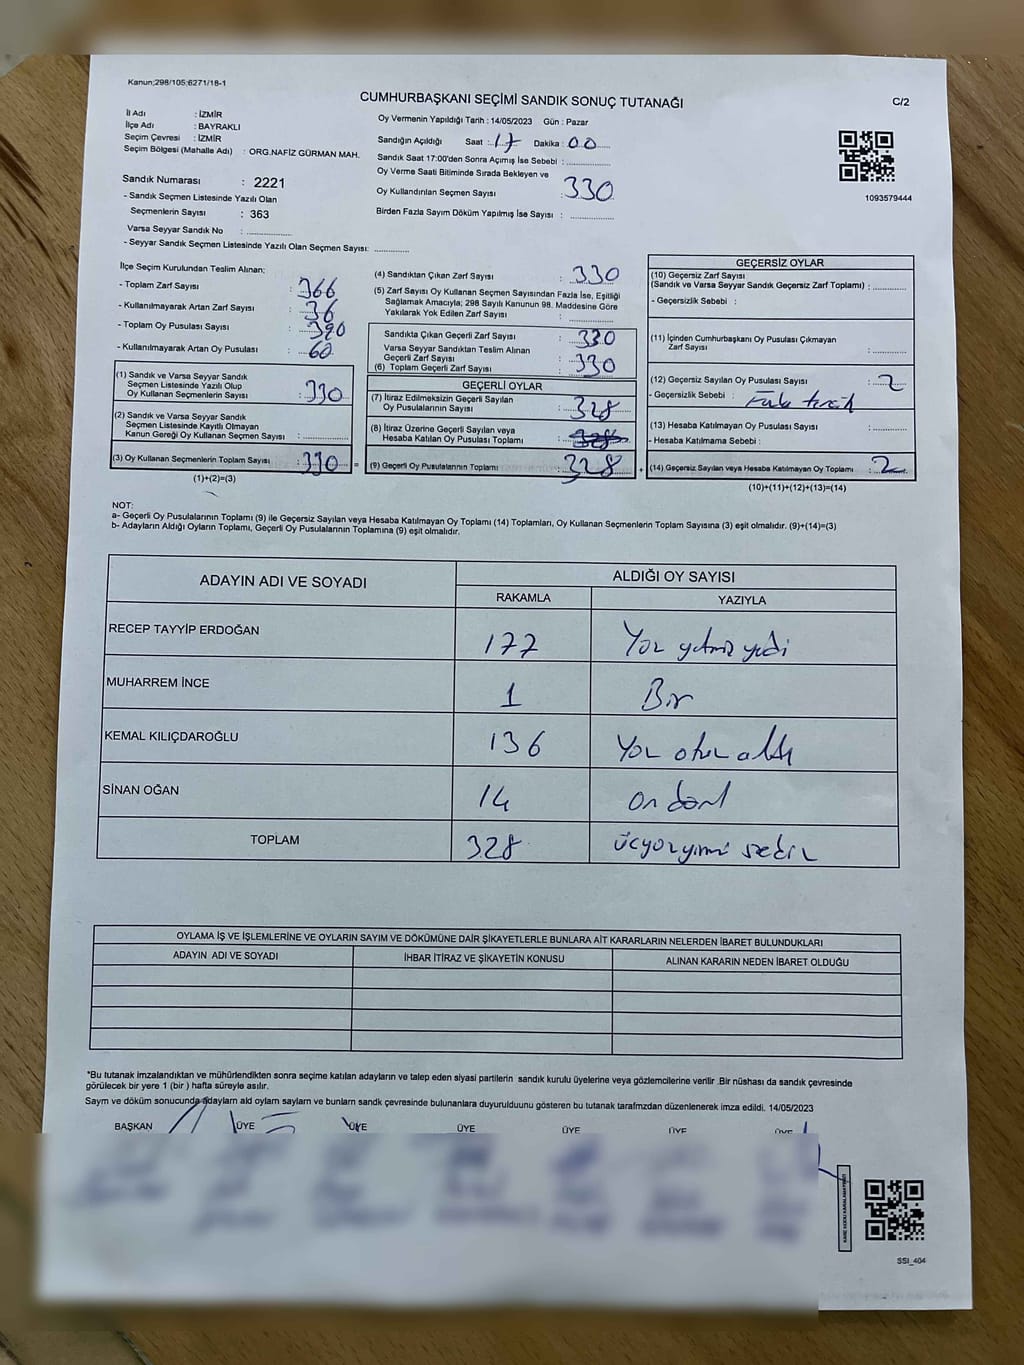 Kanun;298/105;6271/18-1
CUMHURBAŞKANI SEÇİMİ SANDIK SONUÇ TUTANAĞI
C/2
İl Adı : İZMİR
İlçe Adı : BAYRAKLI
Seçim Çevresi : İZMİR
Seçim Bölgesi (Mahalle Adı) : ORG.NAFİZ GÜRMAN MAH.
Sandık Numarası : 2221
- Sandık Seçmen Listesinde Yazılı Olan
Seçmenlerin Sayısı : 363
Varsa Seyyar Sandık No : ...............
- Seyyar Sandık Seçmen Listesinde Yazılı Olan Seçmen Sayısı: ............
Oy Vermenin Yapıldığı Tarih : 14/05/2023 Gün : Pazar
Sandığın Açıldığı Saat : 17 Dakika : 00
Sandık Saat 17:00'den Sonra Açımış İse Sebebi : ...............
Oy Verme Saati Bitiminde Sırada Bekleyen ve
Oy Kullandırılan Seçmen Sayısı : 330
Birden Fazla Sayım Döküm Yapılmış İse Sayısı : ...............
1093579444
İlçe Seçim Kurulundan Teslim Alınan;
- Toplam Zarf Sayısı : 366
- Kullanılmayarak Artan Zarf Sayısı : 36
- Toplam Oy Pusulası Sayısı : 390
- Kullanılmayarak Artan Oy Pusulası : 60
(1) Sandık ve Varsa Seyyar Sandık
Seçmen Listesinde Yazılı Olup
Oy Kullanan Seçmenlerin Sayısı : 330
(2) Sandık ve Varsa Seyyar Sandık
Seçmen Listesinde Kayıtlı Olmayan
Kanun Gereği Oy Kullanan Seçmen Sayısı : ...............
(3) Oy Kullanan Seçmenlerin Toplam Sayısı : 330
(1)+(2)=(3)
(4) Sandıktan Çıkan Zarf Sayısı : 330
(5) Zarf Sayısı Oy Kullanan Seçmen Sayısından Fazla İse, Eşitliği
Sağlamak Amacıyla; 298 Sayılı Kanunun 98. Maddesine Göre
Yakılarak Yok Edilen Zarf Sayısı : ...............
Sandıkta Çıkan Geçerli Zarf Sayısı : 330
Varsa Seyyar Sandıktan Teslim Alınan
Geçerli Zarf Sayısı
(6) Toplam Geçerli Zarf Sayısı : 330
GEÇERLİ OYLAR
(7) İtiraz Edilmeksizin Geçerli Sayılan
Oy Pusulalarının Sayısı : 328
(8) İtiraz Üzerine Geçerli Sayılan veya
Hesaba Katılan Oy Pusulası Toplamı :
= (9) Geçerli Oy Pusulalarının Toplamı : 328
GEÇERSİZ OYLAR
(10) Geçersiz Zarf Sayısı
(Sandık ve Varsa Seyyar Sandık Geçersiz Zarf Toplamı) : ............
- Geçersizlik Sebebi :
(11) İçinden Cumhurbaşkanı Oy Pusulası Çıkmayan
Zarf Sayısı : ............
(12) Geçersiz Sayılan Oy Pusulası Sayısı : 2
- Geçersizlik Sebebi :
(13) Hesaba Katılmayan Oy Pusulası Sayısı : ............
- Hesaba Katılmama Sebebi :
+ (14) Geçersiz Sayılan veya Hesaba Katılmayan Oy Toplamı : 2
(10)+(11)+(12)+(13)=(14)
NOT:
a- Geçerli Oy Pusulalarının Toplamı (9) ile Geçersiz Sayılan veya Hesaba Katılmayan Oy Toplamı (14) Toplamları, Oy Kullanan Seçmenlerin Toplam Sayısına (3) eşit olmalıdır. (9)+(14)=(3)
b- Adayların Aldığı Oyların Toplamı, Geçerli Oy Pusulalarının Toplamına (9) eşit olmalıdır.
ADAYIN ADI VE SOYADI
ALDIĞI OY SAYISI
RAKAMLA YAZIYLA
RECEP TAYYİP ERDOĞAN 177 Yüz yetmiş yedi
MUHARREM İNCE 1 Bir
KEMAL KILIÇDAROĞLU 136 Yüz otuz altı
SİNAN OĞAN 14 on dört
TOPLAM 328 üçyüzyirmi sekiz
OYLAMA İŞ VE İŞLEMLERİNE VE OYLARIN SAYIM VE DÖKÜMÜNE DAİR ŞİKAYETLERLE BUNLARA AİT KARARLARIN NELERDEN İBARET BULUNDUKLARI
ADAYIN ADI VE SOYADI İHBAR İTİRAZ VE ŞİKAYETİN KONUSU ALINAN KARARIN NEDEN İBARET OLDUĞU
*Bu tutanak imzalandıktan ve mühürlendikten sonra seçime katılan adayların ve talep eden siyasi partilerin sandık kurulu üyelerine veya gözlemcilerine verilir .Bir nüshası da sandık çevresinde
görülecek bir yere 1 (bir ) hafta süreyle asılır.
Sayım ve döküm sonucunda adayların ald oyların sayların ve bunların sandk çevresinde bulunanlara duyurulduunu gösteren bu tutanak tarafmzdan düzenlenerek imza edildi. 14/05/2023
BAŞKAN ÜYE ÜYE ÜYE ÜYE ÜYE ÜYE
SSI_404